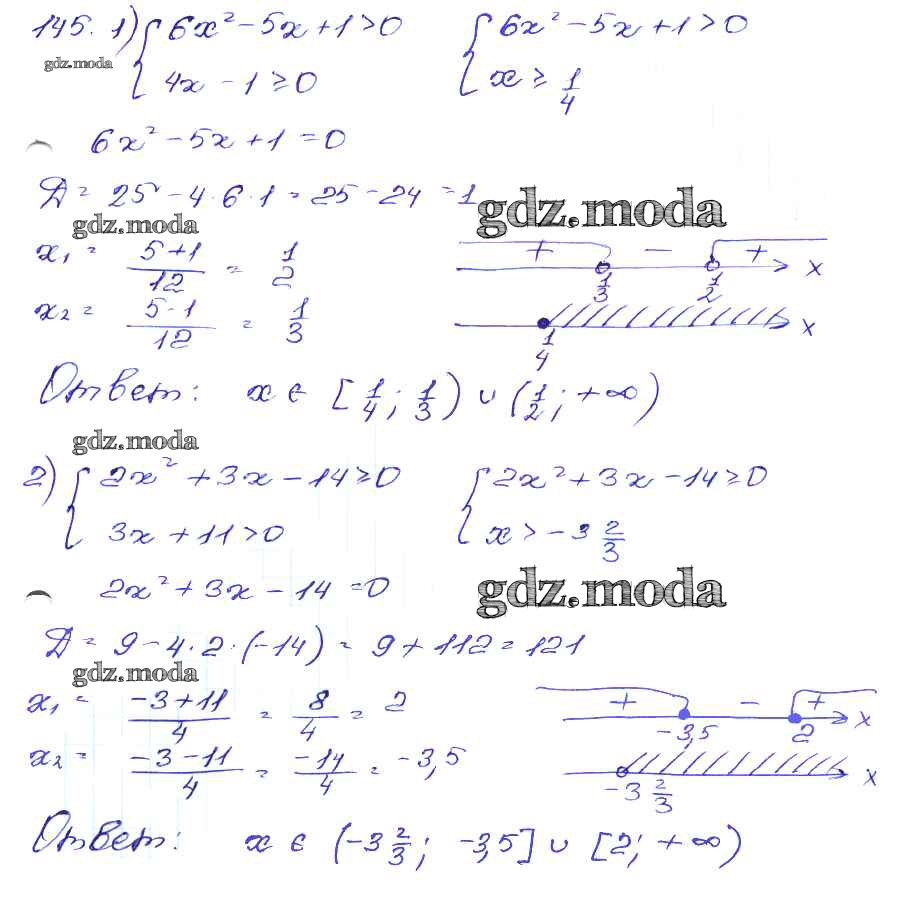 145. 1) { 6x² - 5x + 1 > 0   { 6x² - 5x + 1 > 0
gdz.moda
4x - 1 ≥ 0   x ≥ 1/4
6x² - 5x + 1 = 0
Д = 25 - 4·6·1 = 25 - 24 = 1
gdz.moda
gdz.moda
x₁ = (5+1)/12 = 1/2
x₂ = (5-1)/12 = 1/3
+ - + x
1/3 1/2
x
1/4
Ответ: x ∈ [1/4; 1/3) ∪ (1/2; +∞)
gdz.moda
2) { 2x² + 3x - 14 ≥ 0   { 2x² + 3x - 14 ≥ 0
3x + 11 > 0   x > -3 2/3
2x² + 3x - 14 = 0
gdz.moda
Д = 9 - 4·2·(-14) = 9 + 112 = 121
gdz.moda
x₁ = (-3+11)/4 = 8/4 = 2
x₂ = (-3-11)/4 = -14/4 = -3,5
+ - + x
-3,5 2
x
-3 2/3
Ответ: x ∈ (-3 2/3; -3,5] ∪ [2; +∞)